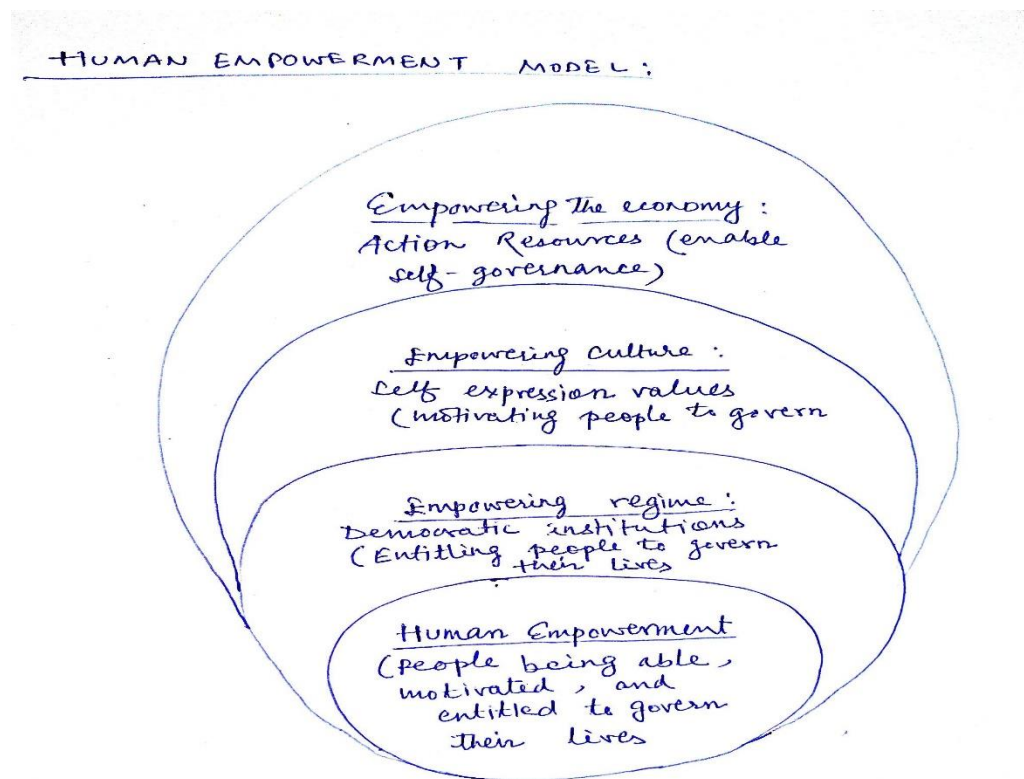 HUMAN EMPOWERMENT MODEL:
Empowering the economy:
Action Resources (enable
self-governance)
Empowering culture:
Self expression values
(motivating people to govern
Empowering regime:
Democratic institutions
(Entitling people to govern
their lives
Human Empowerment
(People being able,
motivated, and
entitled to govern
their lives